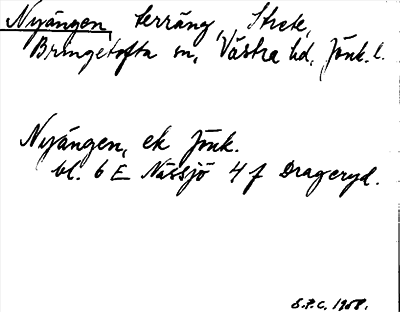 Nyängen, terräng, Strete,
Bringetofta sn, Västra hd, Jönk. l.
Nyängen, ek Jönk.
bl. 6 E Nässjö 4 f Drageryd.
S.P.C. 1958.